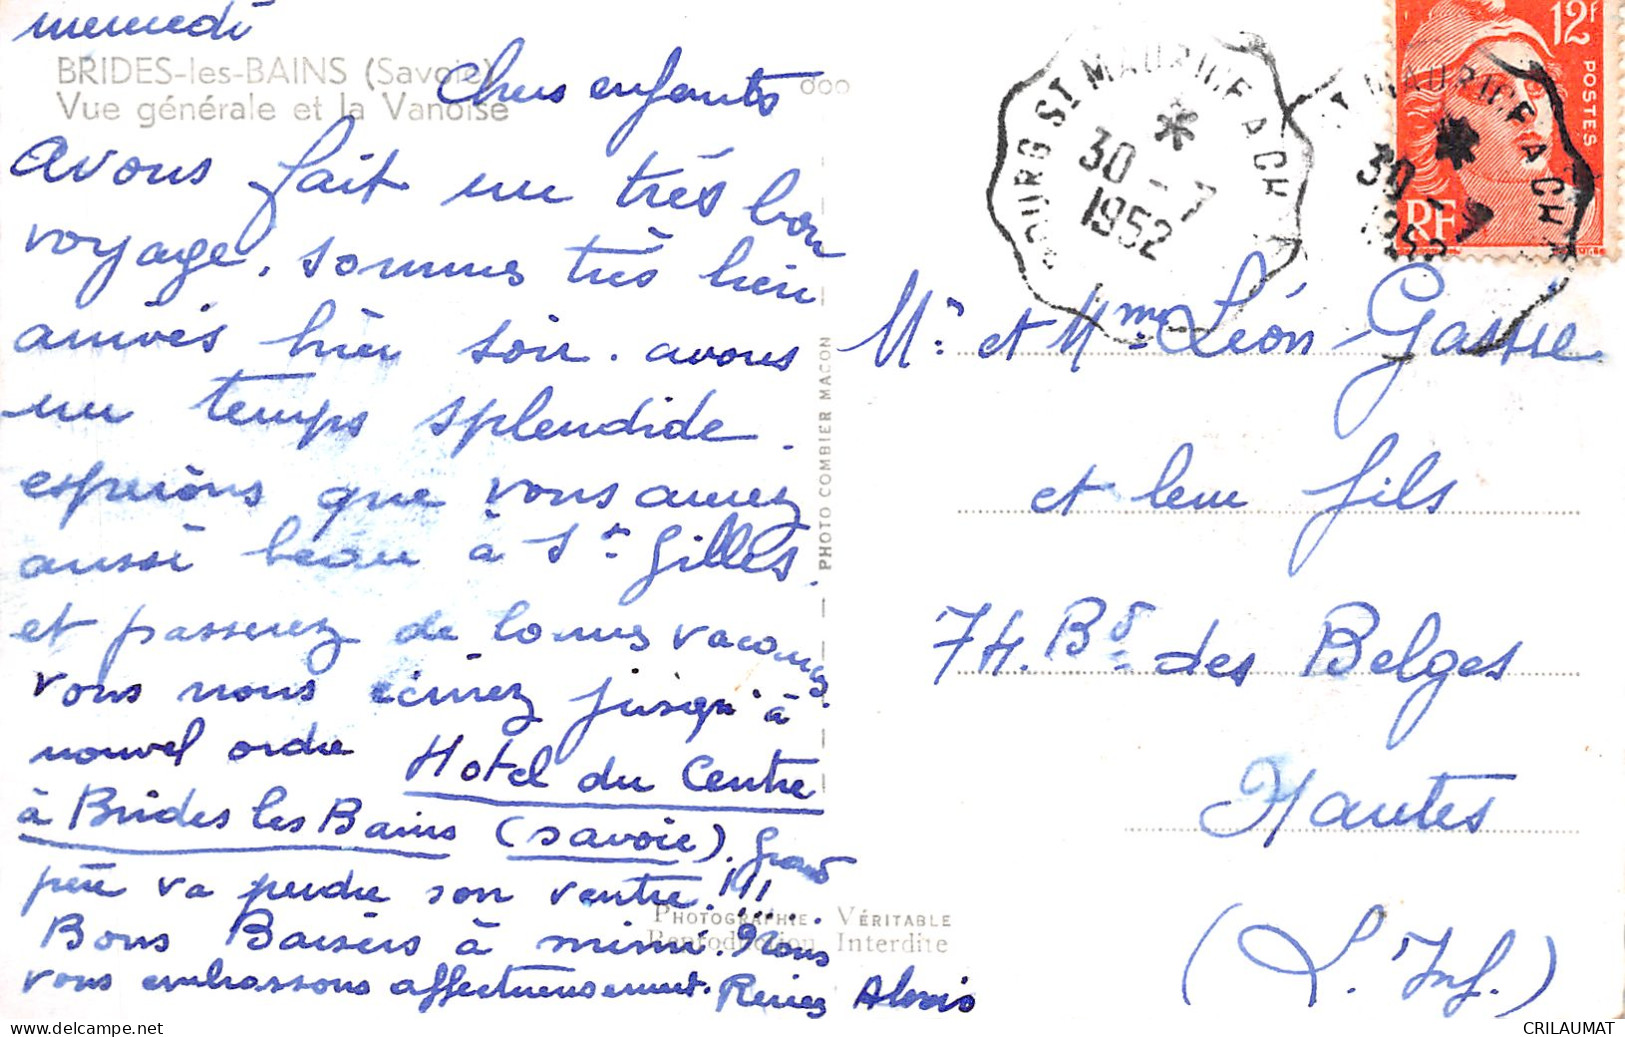 mercredi
BRIDES-les-BAINS (Savoie)
Vue générale et la Vanoise
Chers enfants
Avons fait un très bon
voyage. sommes très bien
arrivés hier soir. avons
un temps splendide.
espérons que vous aurez
aussi beau à St Gilles.
et passerez de bonnes vacances.
vous nous écrirez jusqu'à
nouvel ordre Hotel du Centre
à Brides les Bains (savoie). Grand
père va perdre son ventre.!!!
Bons Baisers à mimi. Nous
vous embrassons affectueusement. Alexis
PHOTOGRAPHIE VÉRITABLE
Reproduction Interdite
PHOTO COMBIER MACON
BOURG ST MAURICE A CH
30-7
1952
ST MAURICE A CH
30-7
1952
12F
POSTES
RF
Mr et Mme Léon Gasse
et leur fils
74. Bd des Belges
Nantes
(L. Inf.)
CRILAUMAT